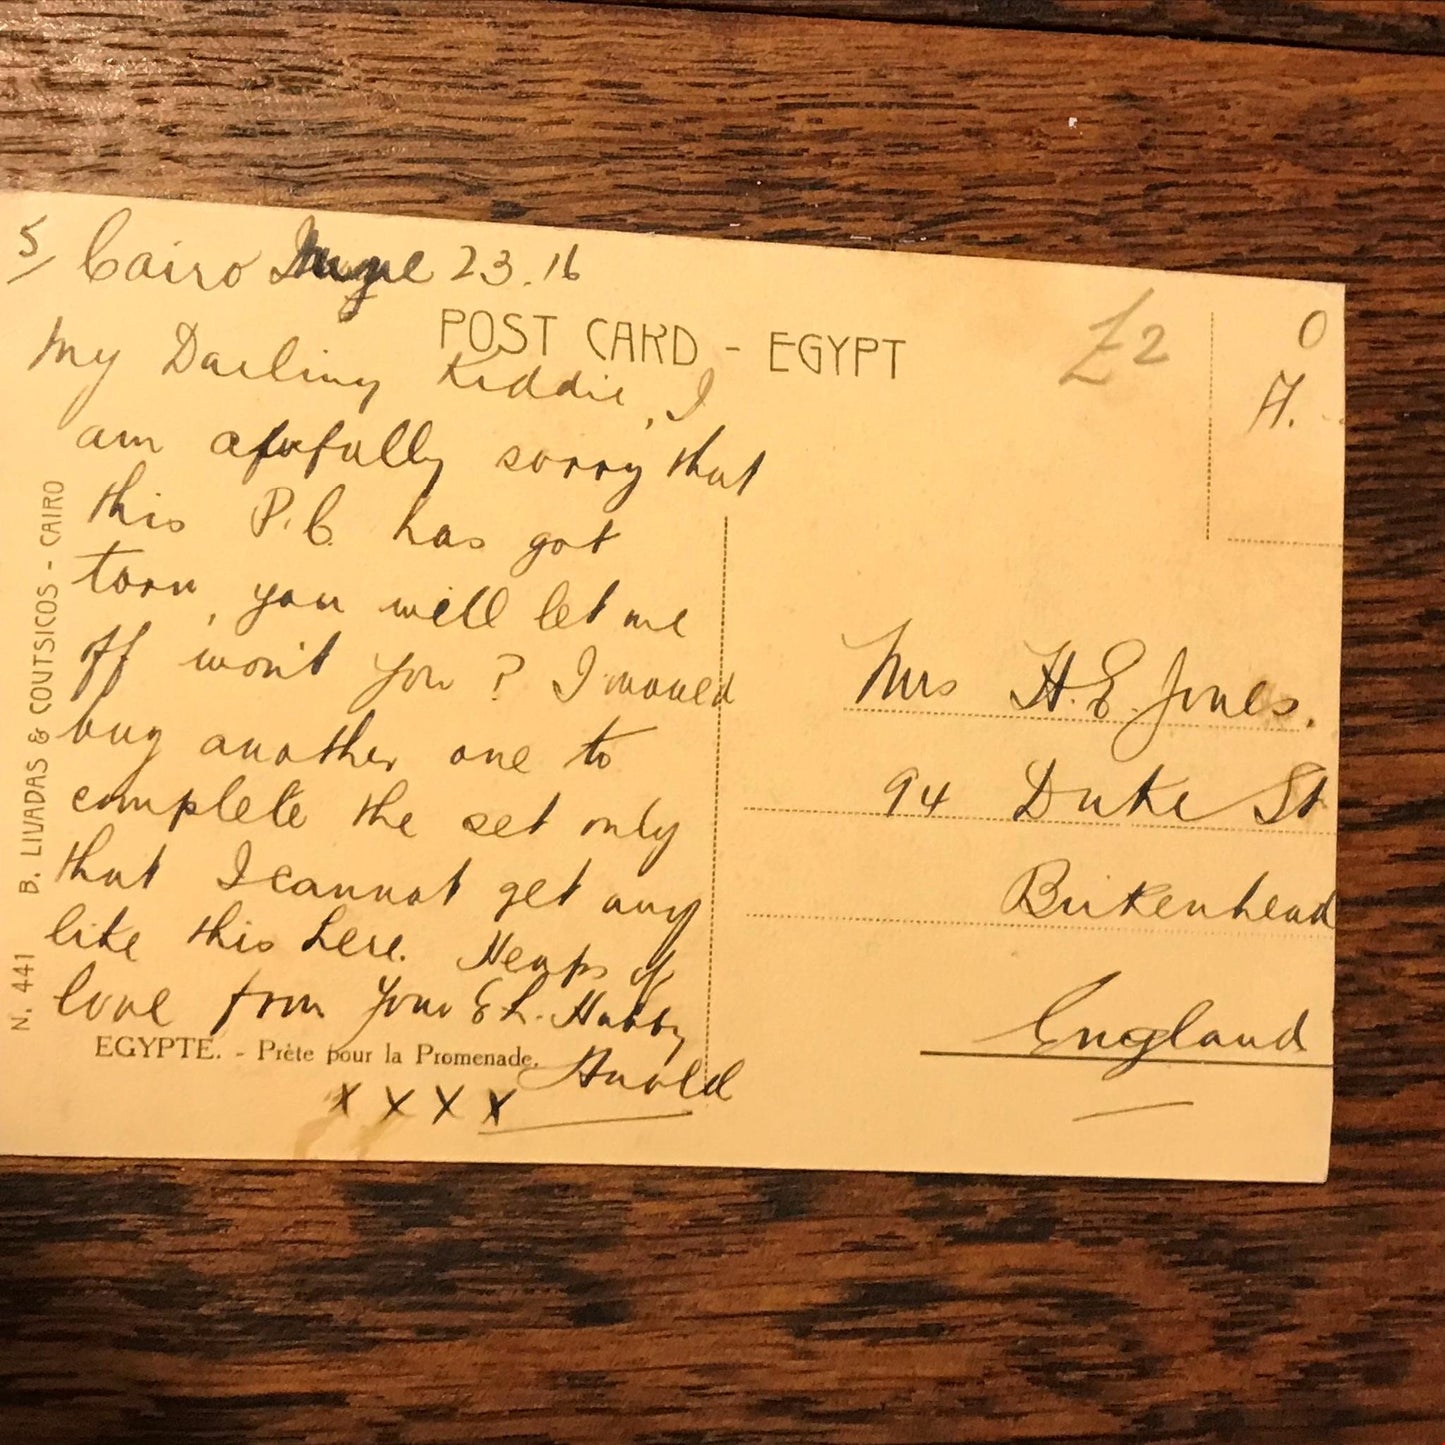 5/ Cairo June 23.16
POST CARD - EGYPT
£2
O
A.
My Darling Kiddie, I
am awfully sorry that
this P.C. has got
torn, you will let me
off won't you? I would
buy another one to
complete the set only
that I cannot get any
like this here. Heaps of
love from your Hubby
Arnold
x x x x
EGYPTE. - Prète pour la Promenade.
N. 441 B. LIVADAS & COUTSICOS - CAIRO
Mrs H.E. Jones.
94 Duke St
Birkenhead
England